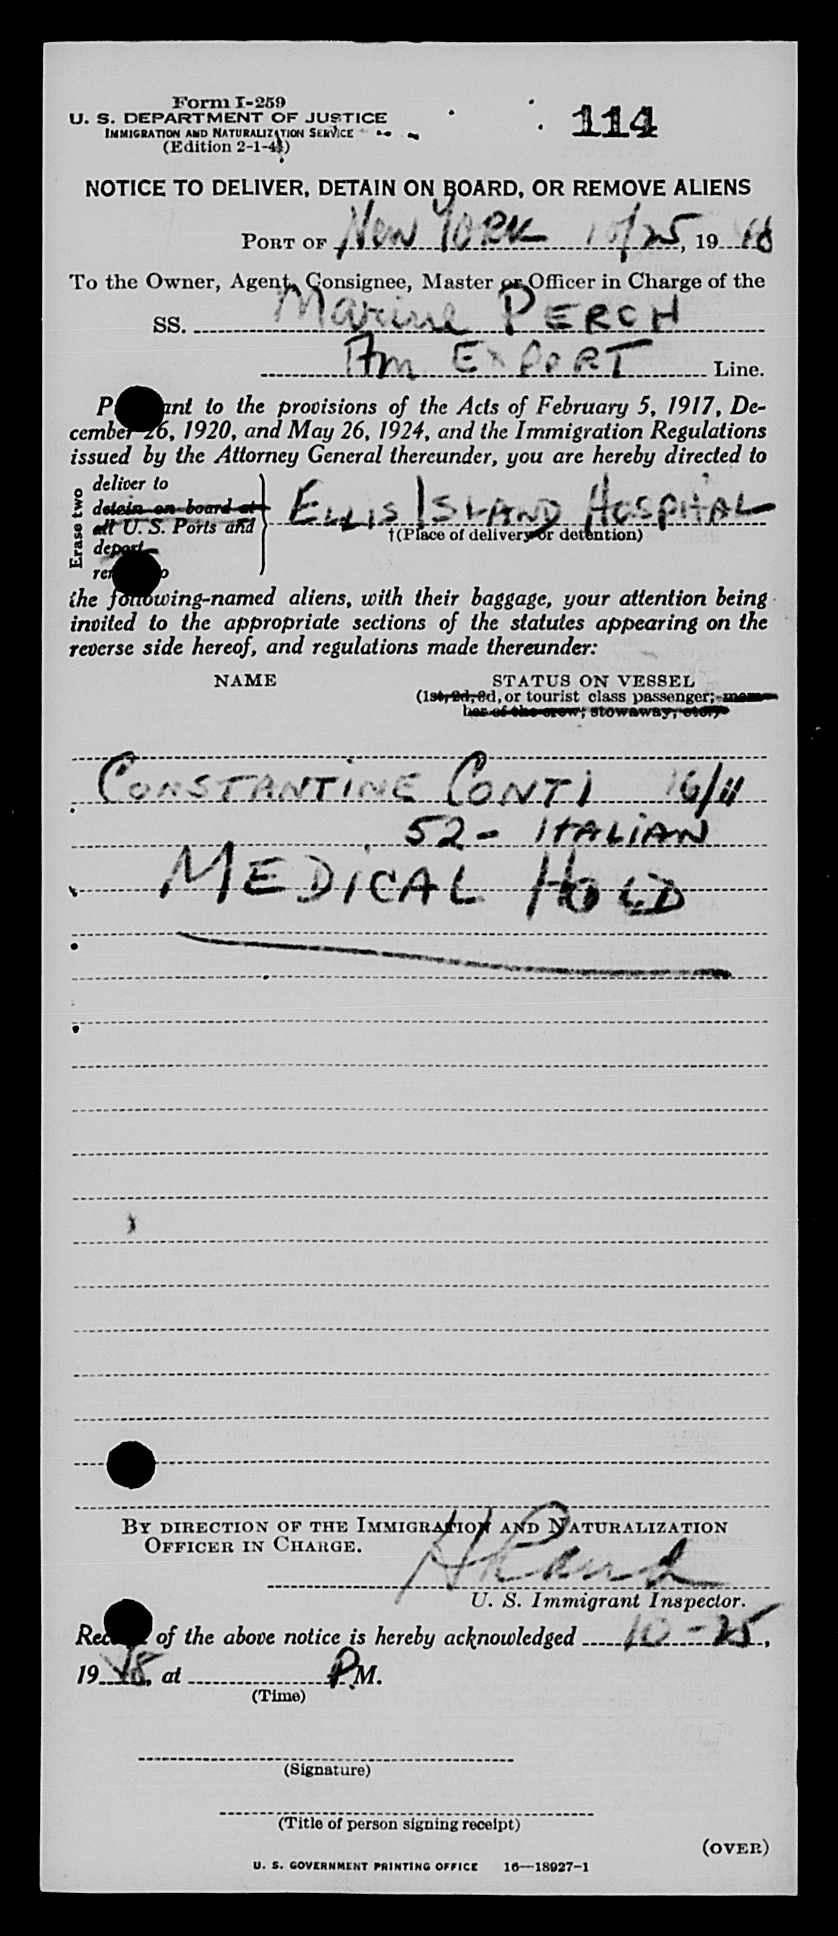 Form I-259
U. S. DEPARTMENT OF JUSTICE
IMMIGRATION AND NATURALIZATION SERVICE
(Edition 2-1-4
114
NOTICE TO DELIVER, DETAIN ON BOARD, OR REMOVE ALIENS
PORT OF New YORK 10/25, 1948
To the Owner, Agent, Consignee, Master or Officer in Charge of the
SS. Marine PERCH
Am EXPORT Line.
P ant to the provisions of the Acts of February 5, 1917, De-
cember 26, 1920, and May 26, 1924, and the Immigration Regulations
issued by the Attorney General thereunder, you are hereby directed to
Erase two
deliver to
detain on board at
all U. S. Ports and
deport
re o
ELLIS ISLAND HOSPITAL
†(Place of delivery or detention)
the following-named aliens, with their baggage, your attention being
invited to the appropriate sections of the statutes appearing on the
reverse side hereof, and regulations made thereunder:
NAME STATUS ON VESSEL
(1st, 2d, 3d, or tourist class passenger; mem-
ber of the crew; stowaway, etc.)
CONSTANTINE CONTI 16/11
52 - ITALIAN
MEDICAL HOLD
BY DIRECTION OF THE IMMIGRATION AND NATURALIZATION
OFFICER IN CHARGE.
U. S. Immigrant Inspector.
Rec of the above notice is hereby acknowledged 10-25,
1948, at P.M.
(Time)
(Signature)
(Title of person signing receipt)
(OVER)
U. S. GOVERNMENT PRINTING OFFICE 16—18927-1